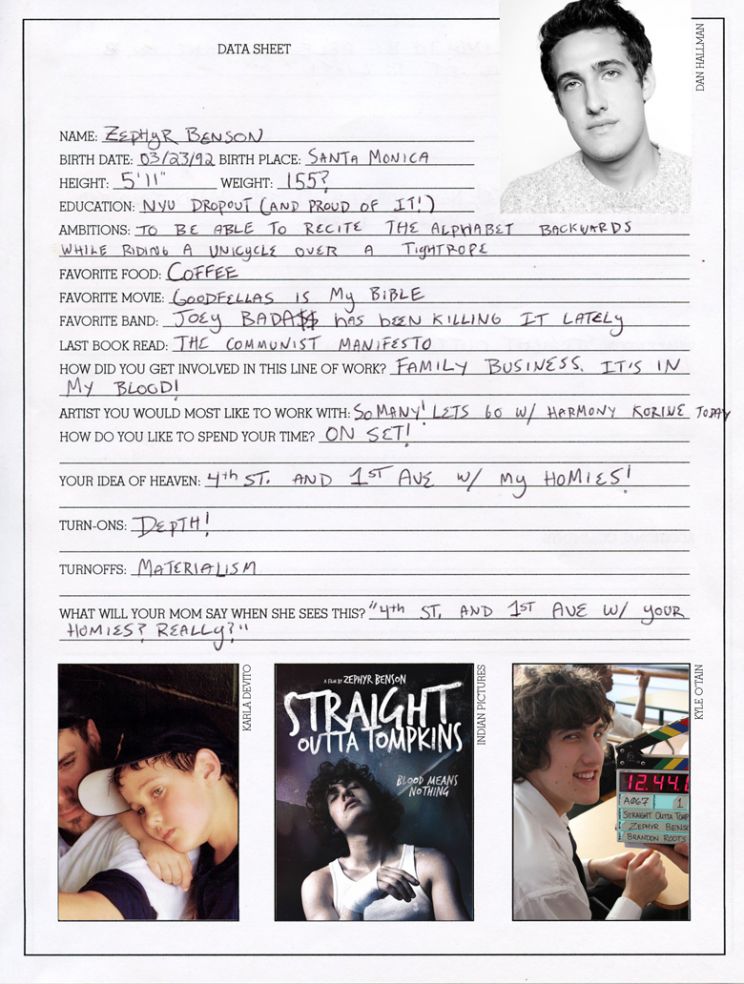 DATA SHEET
DAN HALLMAN
NAME: ZEPHYR BENSON
BIRTH DATE: 03/23/92 BIRTH PLACE: SANTA MONICA
HEIGHT: 5'11" WEIGHT: 155?
EDUCATION: NYU DROPOUT (AND PROUD OF IT!)
AMBITIONS: TO BE ABLE TO RECITE THE ALPHABET BACKWARDS
WHILE RIDING A UNICYCLE OVER A TIGHTROPE
FAVORITE FOOD: COFFEE
FAVORITE MOVIE: GOODFELLAS IS MY BIBLE
FAVORITE BAND: JOEY BADA$$ HAS BEEN KILLING IT LATELY
LAST BOOK READ: THE COMMUNIST MANIFESTO
HOW DID YOU GET INVOLVED IN THIS LINE OF WORK? FAMILY BUSINESS. IT'S IN
MY BLOOD!
ARTIST YOU WOULD MOST LIKE TO WORK WITH: SO MANY! LETS GO W/ HARMONY KORINE TODAY
HOW DO YOU LIKE TO SPEND YOUR TIME? ON SET!
YOUR IDEA OF HEAVEN: 4th ST. AND 1ST AVE W/ MY HOMIES!
TURN-ONS: DEPTH!
TURNOFFS: MATERIALISM
WHAT WILL YOUR MOM SAY WHEN SHE SEES THIS? "4th ST. AND 1ST AVE W/ YOUR
HOMIES? REALLY?"
KARLA DEVITO
A FILM BY ZEPHYR BENSON
STRAIGHT
OUTTA TOMPKINS
BLOOD MEANS
NOTHING
INDIAN PICTURES
12.44.
A067 1
STRAIGHT OUTTA TOMP
ZEPHYR BENS
BRANDON ROOTS
KYLE O'TAIN